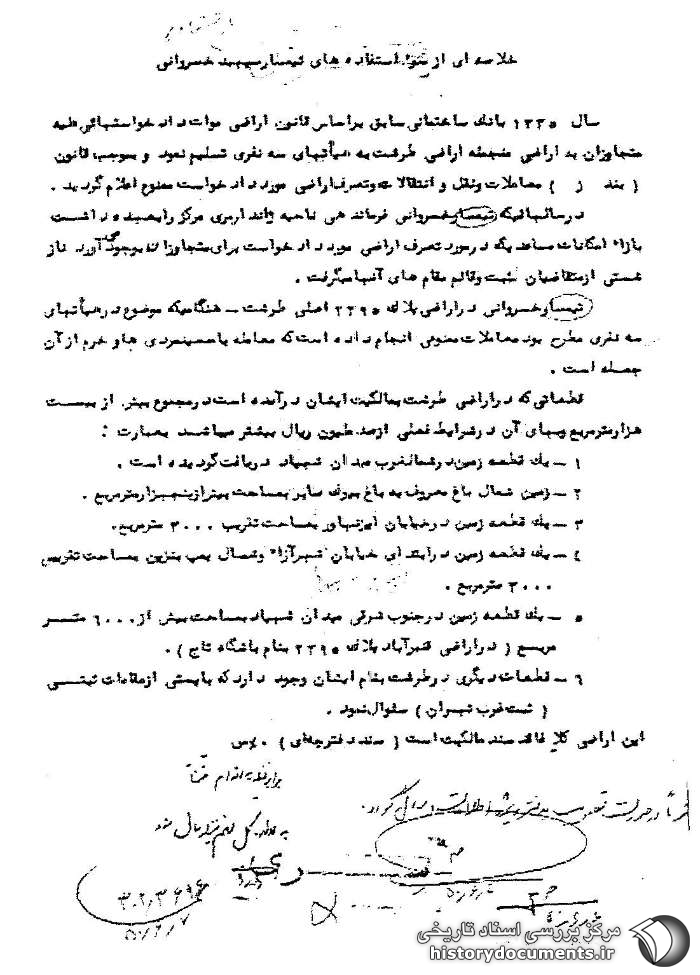 خلاصه ای از سوء استفاده های تیمسار سپهبد خسروانی
سال ۱۳۳۵ بانك ساختمانی سابق براساس قانون اراضی موات دادخواستهائی علیه
متجاوزان به اراضی منجمله اراضی طرشت به هیأتهای سه نفری تسلیم نمود و بموجب قانون
( بند ز ) معاملات ونقل و انتقالات وتصرف اراضی مورد دادخواست ممنوع اعلام گردید .
درسالهائیکه تیمسار خسروانی فرماندهی ناحیه ژاندارمری مرکز رابعهده داشت
بازاء امکانات مساعدیکه درمورد تصرف اراضی مورد دادخواست برای متجاوزان بوجود آورد ناز
شستی ازمتقاضیان ثبت وقائم مقام های آنها میگرفت .
تیمسار خسروانی دراراضی پلاك ۲۳۹۵ اصلی طرشت – هنگامیکه موضوع درهیأتهای
سه نفری مطرح بود معاملات ممنوعی انجام داده است که معامله باحسینمردی ها و خرم از آن
جمله است .
قطعاتی که دراراضی طرشت بمالگیت ایشان درآمده است درمجموع بیش از بیست
هزارمترمربع وبهای آن درشرایط فعلی ازصد ملیون ریال بیشتر میباشد بعبارت :
۱ – یك قطعه زمین درشمالغرب میدان شهیاد دریافت گردیده است .
۲ – زمین شمال باغ معروف به باغ بیوك صابر بمساحت بیش ازپنجهزارمترمربع .
۳ – یك قطعه زمین درخیابان آیزنهاور بمساحت تقریب ۳۰۰۰ مترمربع .
٤ – یك قطعه زمین درابتدای خیابان شهرآراء وشمال پمپ بنزین بمساحت تقریبی
۳۰۰۰ مترمربع .
۵ – یك قطعه زمین درجنوب شرقی میدان شهیاد بمساحت بیش از ٦۰۰۰ متر
مربع ( دراراضی قنبرآباد پلاك ۲۳۹۵ بنام باشگاه تاج ) .
٦ – قطعات دیگری درطرشت بنام ایشان وجود دارد که بایستی ازمقامات ثبتی
( ثبت غرب تهران ) سئوال نمود .
این اراضی کلا فاقد سند مالکیت است ( سند دفترچه‌ای )
مرکز بررسی اسناد تاریخی
historydocuments.ir